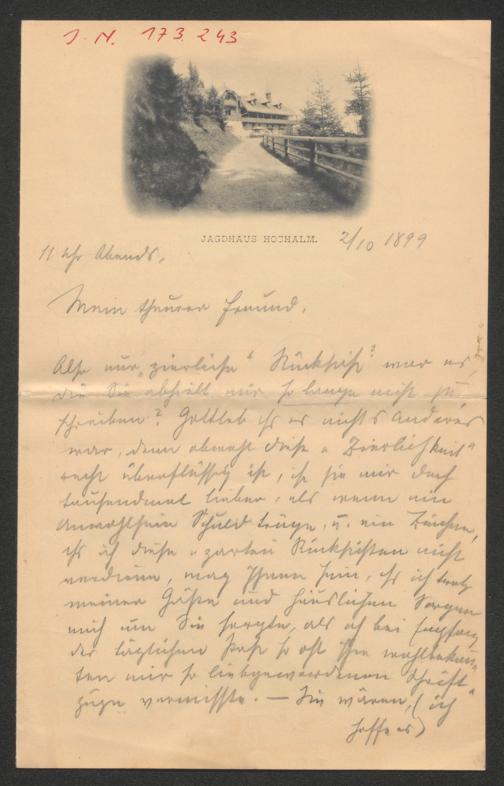 J. N. 173.243
JAGDHAUS HOCHALM.
2/10 1899
11 Uhr Abends,
Mein theurer Freund.
Also nur „zierliche“ Rücksicht? war es,
die Sie abhielt mir so lange nicht zu
schreiben? Gottlob das es nichts Anderes
war, denn obwohl diese „Zierlichkeit“
recht überflüssig ist, ist sie mir doch
tausendmal lieber, als wenn ein
Unwohlsein Schuld trüge, u. ein Zeichen,
das ich diese „zarten Rücksichten nicht
verdiene, mag Ihnen sein, das ich trotz
meiner Gäste und häuslichen Sorgen
mich um Sie sorgte, als ich bei Empfang
der täglichen Post so oft Ihre wohlbekan„
ten mir so liebgewordenen Schrift„
züge vermisste. — Sie wären, (ich
hoffe es)